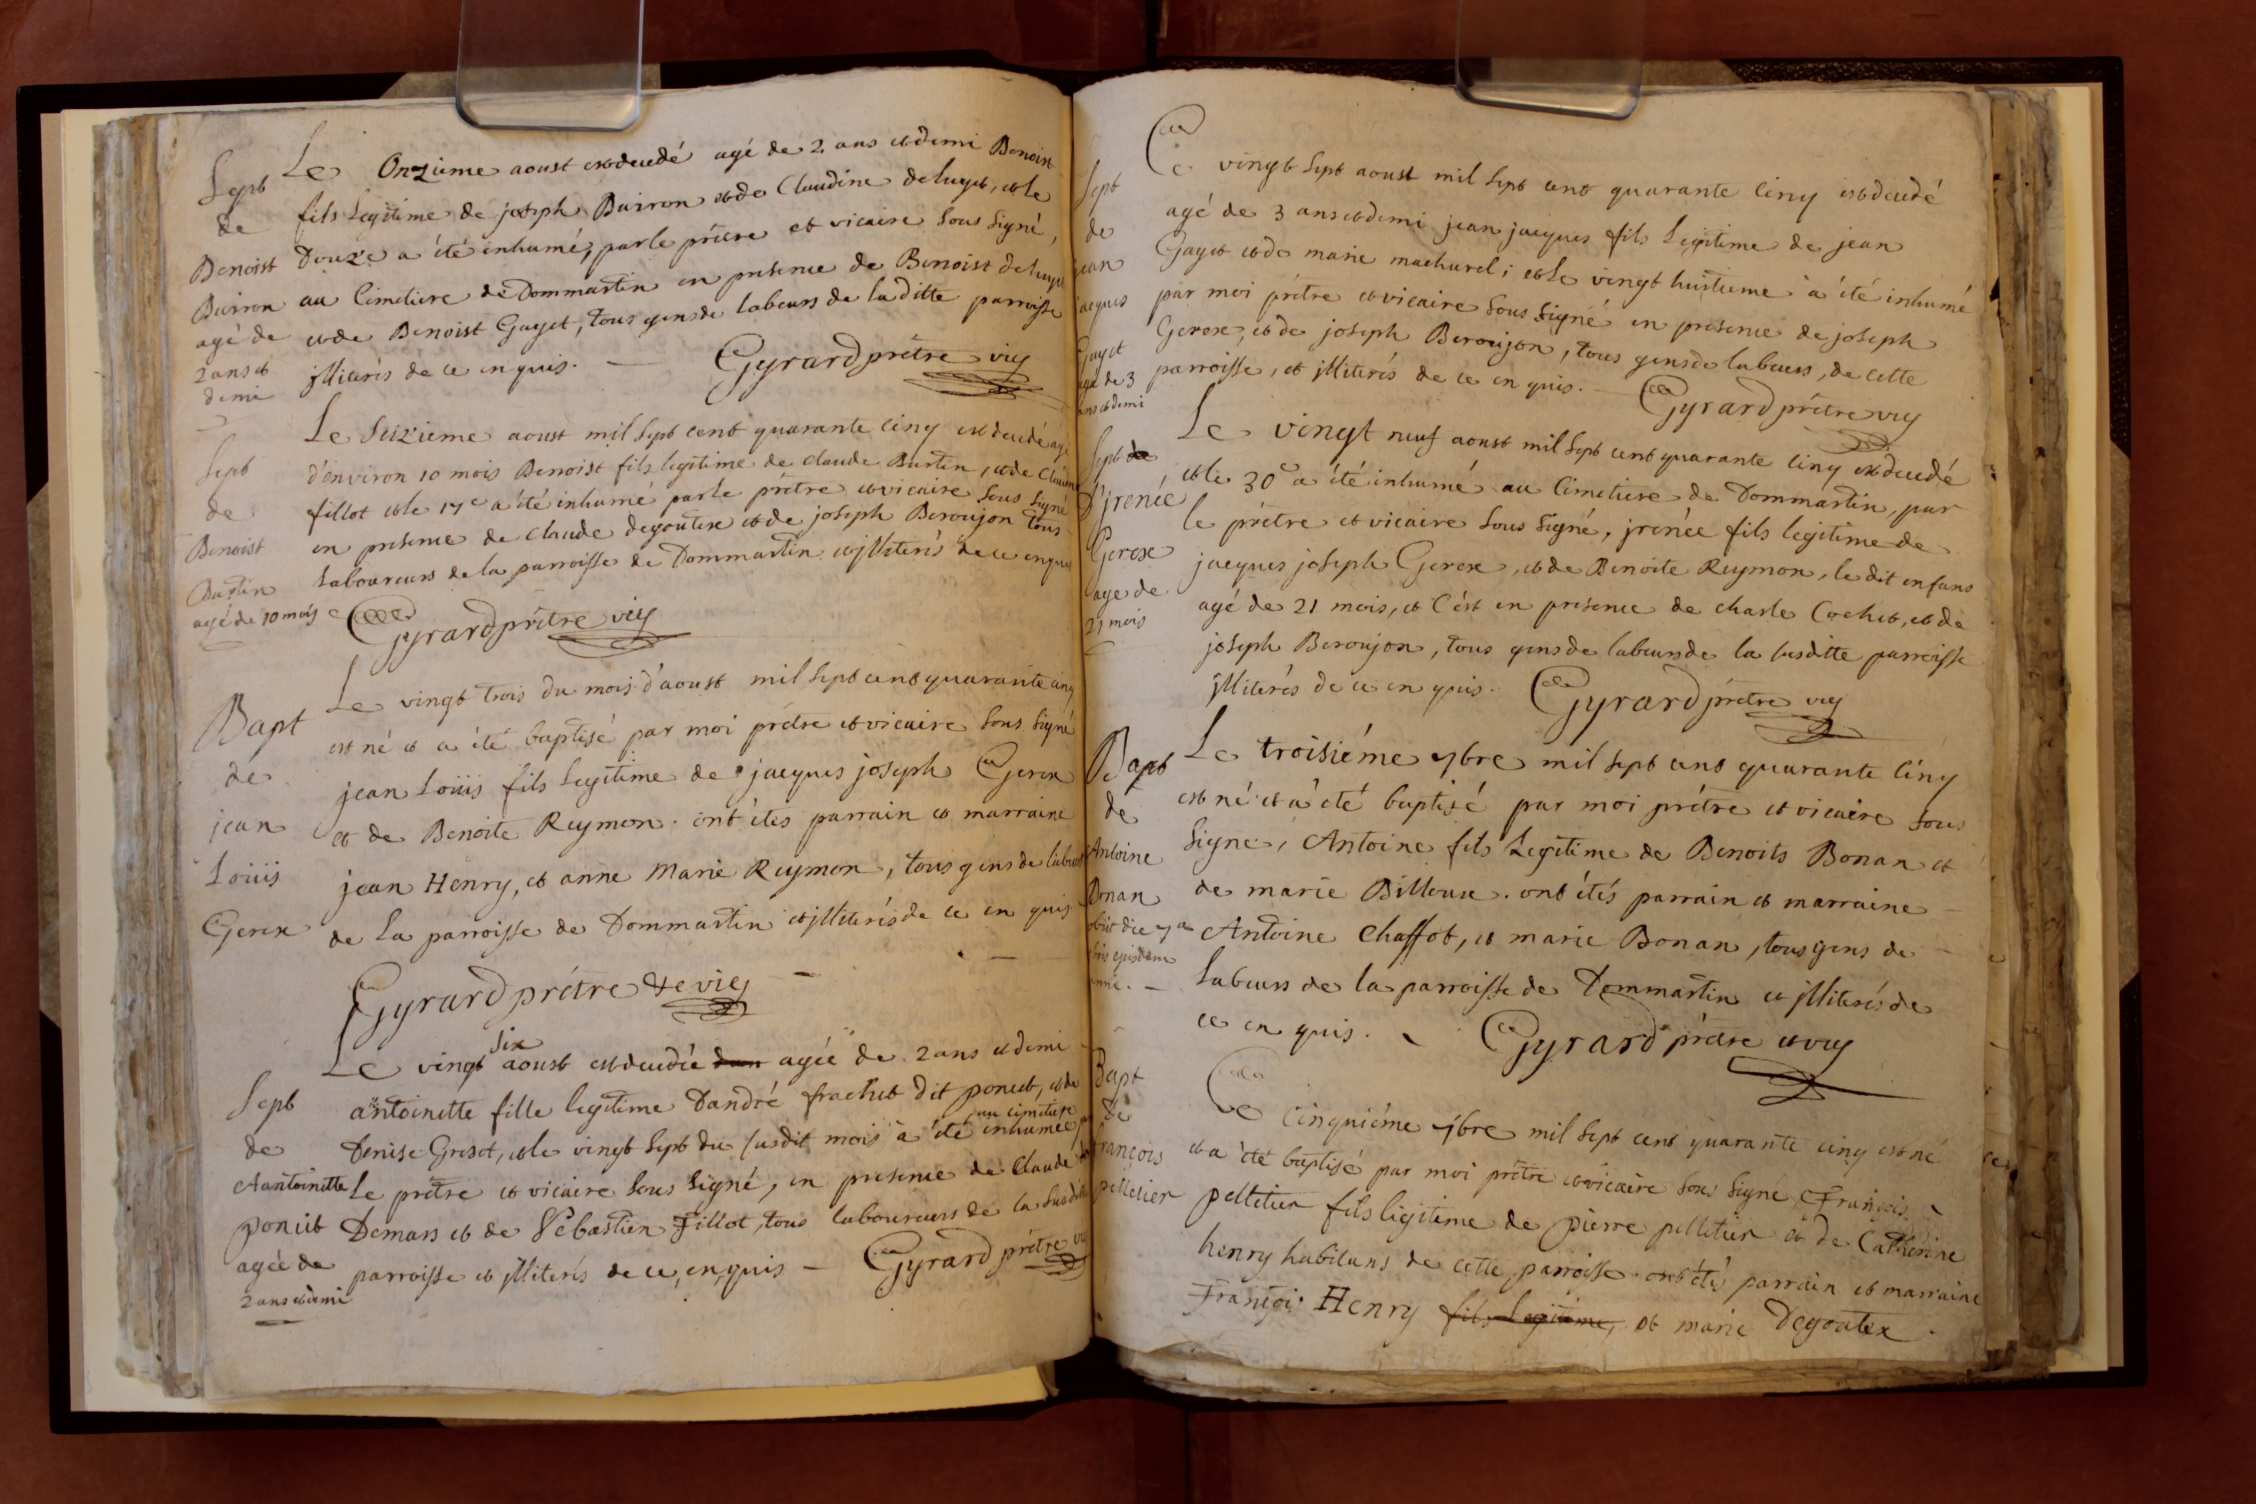 Sept
de
Benoist
Buiron
agé de
2 ans et
demi
Le Onzieme aoust est decedé agé de 2 ans et demi Benoist
fils legitime de joseph Buiron et de Claudine deluget, et le
Douze a été inhumé, par le prêtre et vicaire sous signé,
au Cimetiere de Dommartin en presence de Benoist deluget
et de Benoist Guyet, tous gens de labeurs de la ditte parroisse
jlliterés de ce en quis.
Gyrard prêtre vic
Sept
de
Benoist
Burtin
agé de 10 mois
Le Seizieme aoust mil sept cent quarante cinq est decedé agé
d'environ 10 mois Benoist fils legitime de claude Burtin, et de Claudine
fillot et le 17e a été inhumé par le prêtre et vicaire sous signé
en presence de claude degoutere et de joseph Beroujon tous
laboureurs de la parroisse de Dommartin et jlliterés de ce enquis
Gyrard prêtre vic
Bapt
de
jean
Loüis
Gerex
Le vingt trois du mois d'aoust mil sept cent quarante cinq
est né et a été baptisé par moi prêtre et vicaire sous signé
jean Loüis fils legitime de jacques joseph Gerex
et de Benoite Reymon. ont étes parrain et marraine
jean Henry, et anne Marie Reymon, tous gens de labeur
de la parroisse de Dommartin et jlliterés de ce en quis
Gyrard prêtre et vic
Sept
de
Antoinette
ponut
agée de
2 ans et demi
Le vingt six aoust est decedée dan agée de 2 ans et demi
antoinette fille legitime D'andré frachet dit ponut, et de
Denise Groset, et le vingt sept du susdit mois a été inhumée au cimetiere par
le prêtre et vicaire sous signé, en presence de Claude
Demars et de Sebastien Fillot, tous laboureurs de la susditte
parroisse et jlliterés de ce, en quis Gyrard prêtre vic
Sept
de
jean
jacques
Guyet
agé de 3
ans et demi
Le vingt sept aoust mil sept cent quarante cinq est decedé
agé de 3 ans et demi jean jacques fils legitime de jean
Guyet et de marie machurel; et le vingt huitieme a été inhumé
par moi prêtre et vicaire sous signé en presence de joseph
Gerox, et de joseph Beroujon, tous gens de labeurs, de cette
parroisse, et jlliterés de ce en quis.
Gyrard prêtre vic
Sept de
D'jrenée
Gerox
agé de
21 mois
Le vingt neuf aoust mil sept cent quarante cinq est decedé
, et le 30e a été inhumé au Cimetiere de Dommartin, par
le prêtre et vicaire sous signé, jrenée fils legitime de
jacques joseph Gerex, et de Benoite Reymon, le dit enfans
agé de 21 mois, et c'est en presence de charle Cochet, et de
joseph Beroujon, tous gens de labeurs de la susditte parroisse
jlliterés de ce en quis. Gyrard prêtre vic
Bapt
de
Antoine
Bonan
obiit die 7a
bris ejusdem
anni.
Le troisiéme 7bre mil sept cent quarante cinq
est né et a été baptisé par moi prêtre et vicaire sous
signe, Antoine fils Legitime de Benoits Bonan et
de marie Billoux. ont étés parrain et marraine
Antoine Chaffot, et marie Bonan, tous gens de
labeurs de la parroisse de Dommartin et jlliterés de
ce en quis. Gyrard prêtre et vic
Bapt
de
françois
pelletier
Le Cinquiéme 7bre mil sept cent quarante cinq est né
et a été baptisé par moi prêtre et vicaire sous signé François
pelletier fils legitime de pierre pelletier et de Catherine
henry habitans de cette parroisse. ont étés parrain et marraine
François Henry fils legitime, et marie Degoutex.